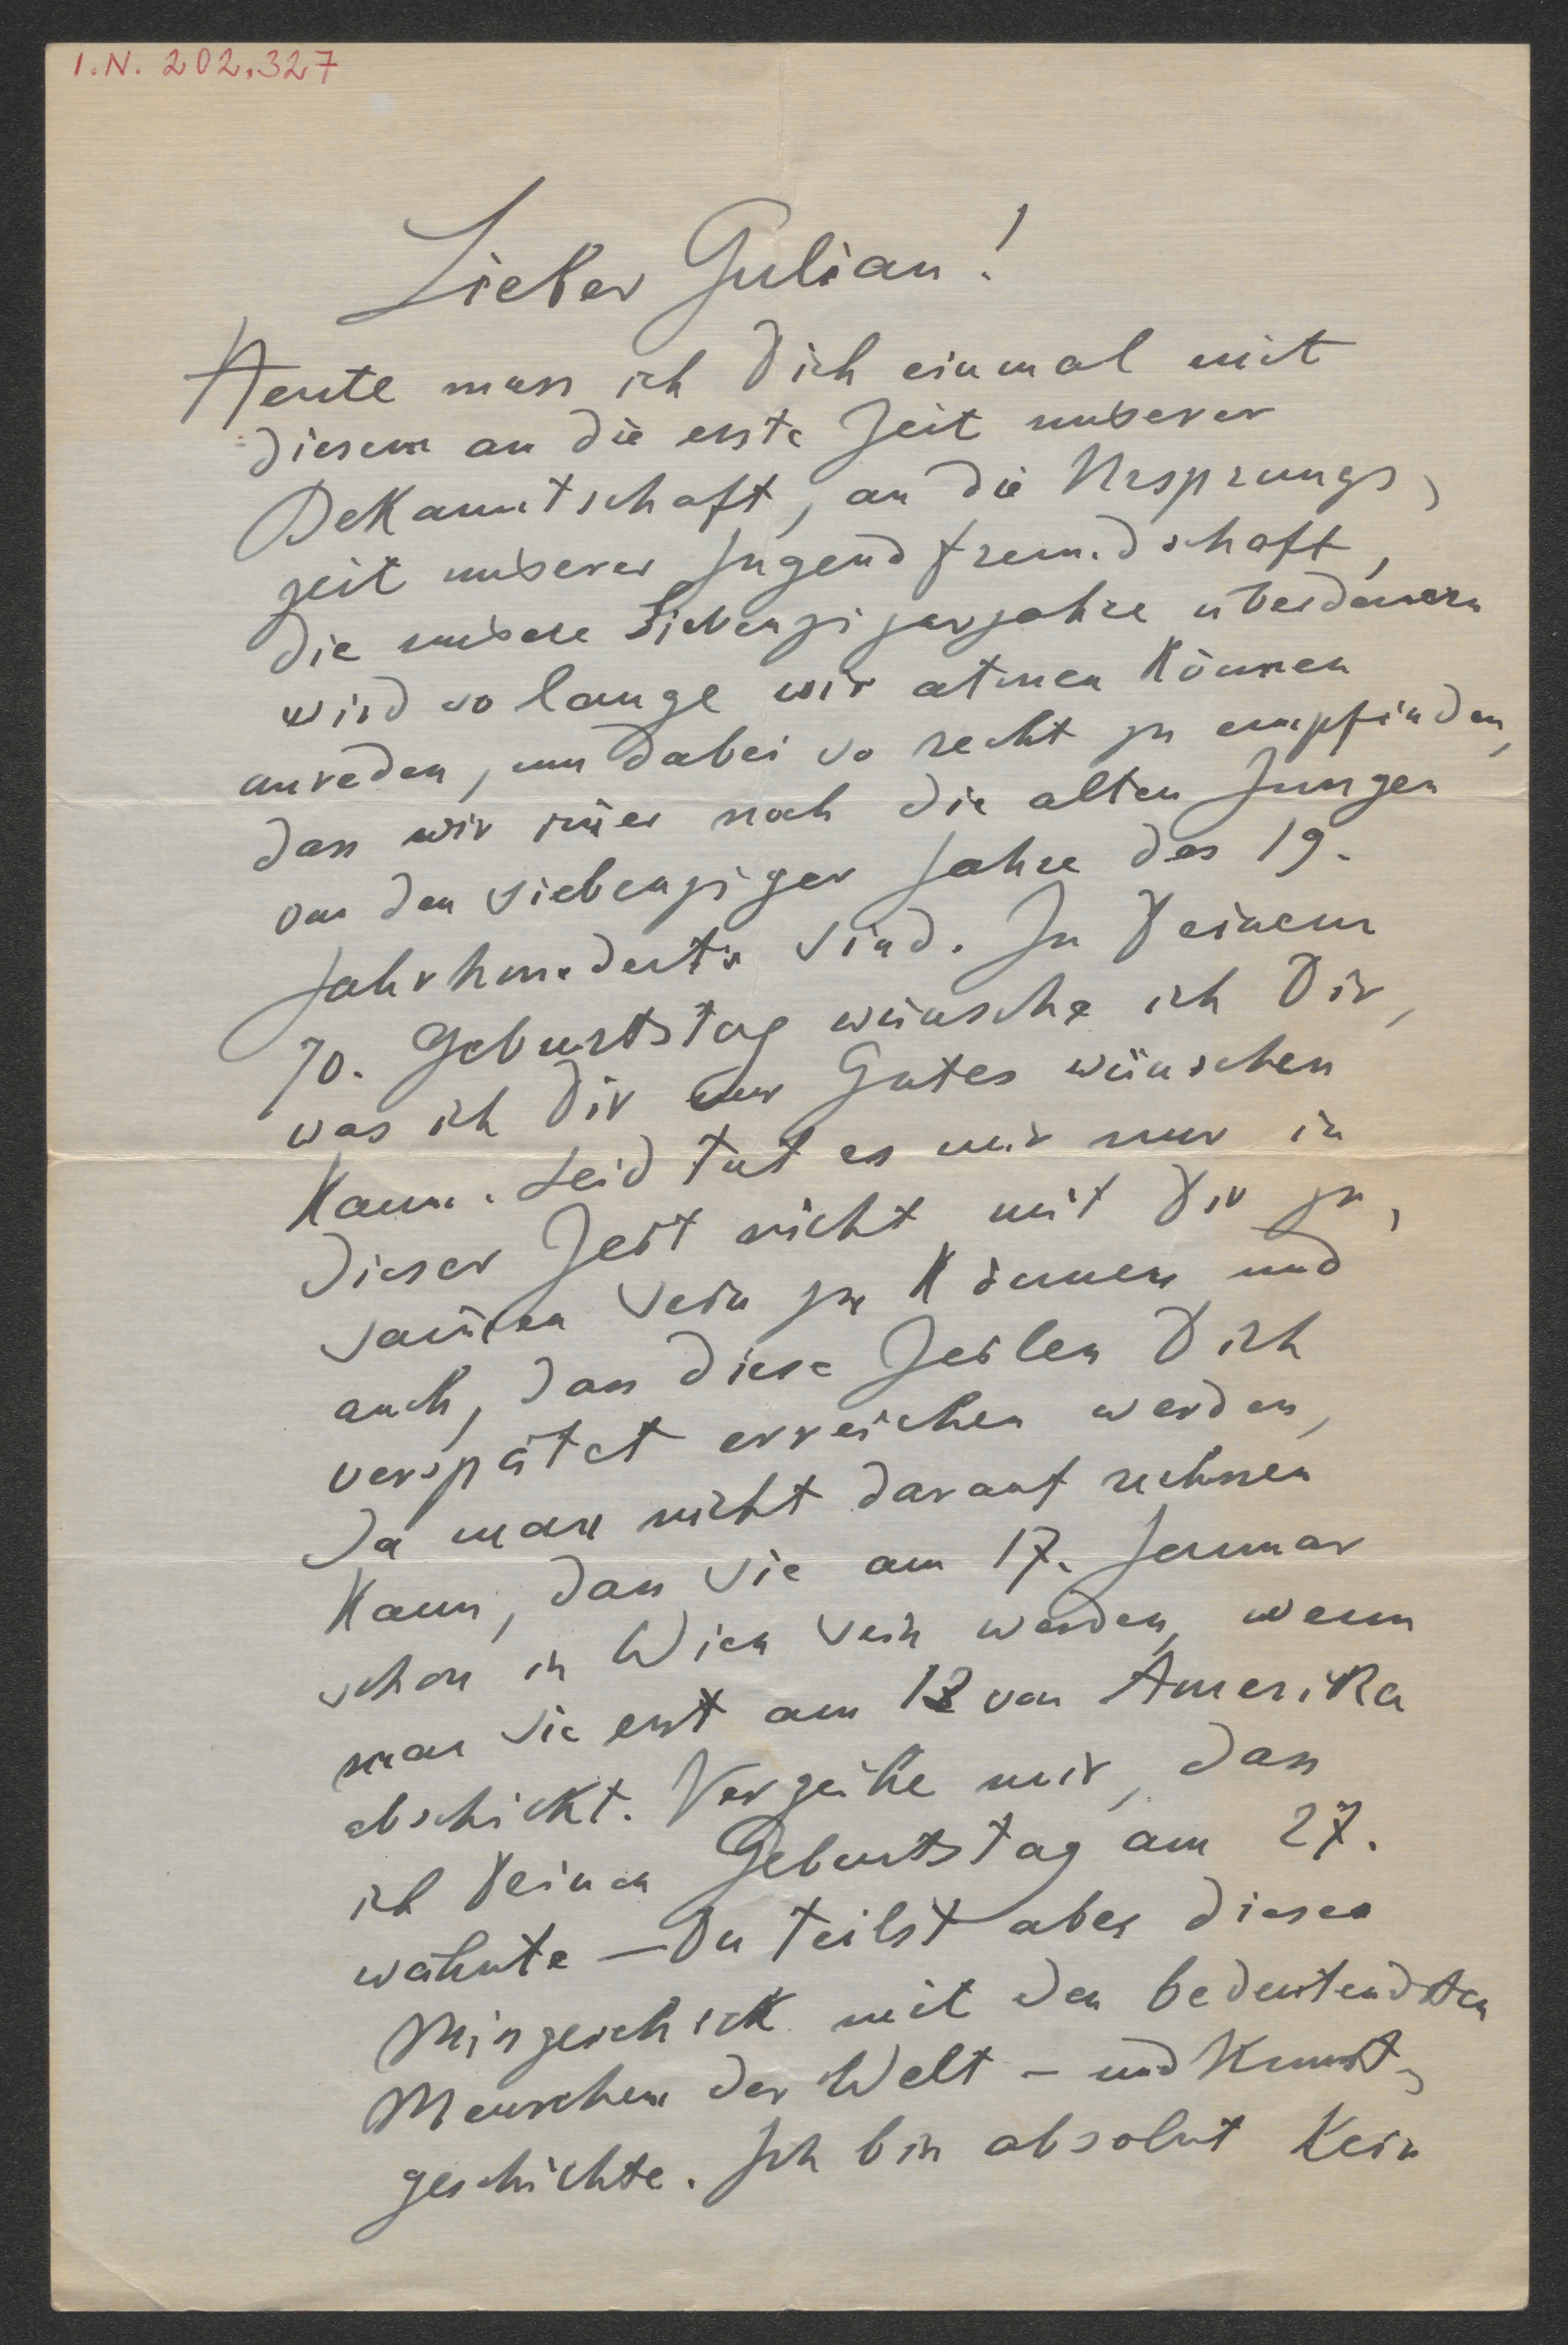 I.N. 202.327
Lieber Gulian!
Heute muss ich Dich einmal mit
diesem an die erste Zeit unserer
Bekanntschaft, an die Ursprungs-
zeit unserer Jugendfreundschaft,
die unsere Siebenzigerjahre überdauern
wird so lange wir atmen können
anreden, um dabei so recht zu empfinden,
dass wir im̅er noch die alten Jungen
von den siebenziger Jahre des 19.
Jahrhunderts sind. Zu Deinem
70. Geburtstag wünsche ich Dir,
was ich Dir nur Gutes wünschen
kann. Leid tut es mir nur in
dieser Zeit nicht mit Dir zu-
sam̅en sein zu können und
auch, dass diese Zeilen Dich
verspätet erreichen werden,
da man nicht darauf rechnen
kann, dass sie am 17. Januar
schon in Wien sein werden, wenn
man sie erst am 12 von Amerika
abschickt. Verzeihe mir, dass
ich Deinen Geburtstag am 27.
wähnte – Du teilst aber dieses
Missgeschick mit den bedeutendsten
Menschen der Welt – und Kunst-
geschichte. Ich bin absolut kein